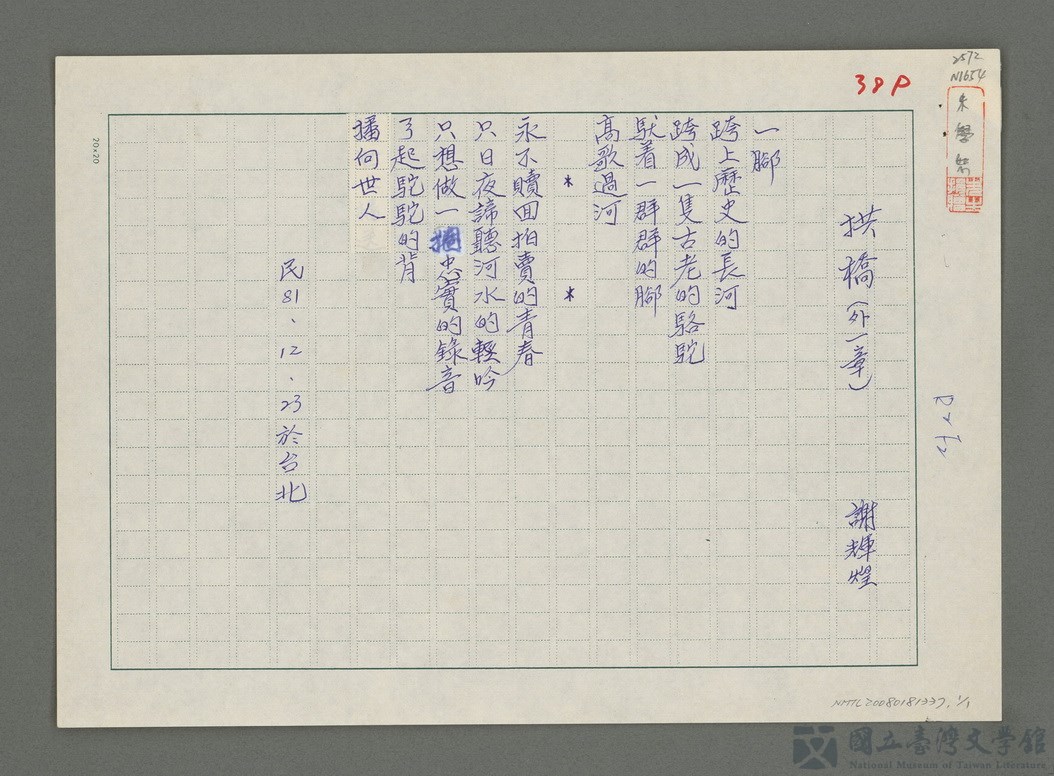 38P
2572
N1654
朱學恕
拱橋（外一章）
謝輝煌
一腳
跨上歷史的長河
跨成一隻古老的駱駝
馱着一群群的腳
高歌過河
* *
永不贖回拍賣的青春
只日夜諦聽河水的輕吟
只想做一捆忠實的錄音
弓起駝駝的背
播向世人
民81、12、23於台北
20×20
NMTL20080181337, 1/1
國立臺灣文學館
National Museum of Taiwan Literature